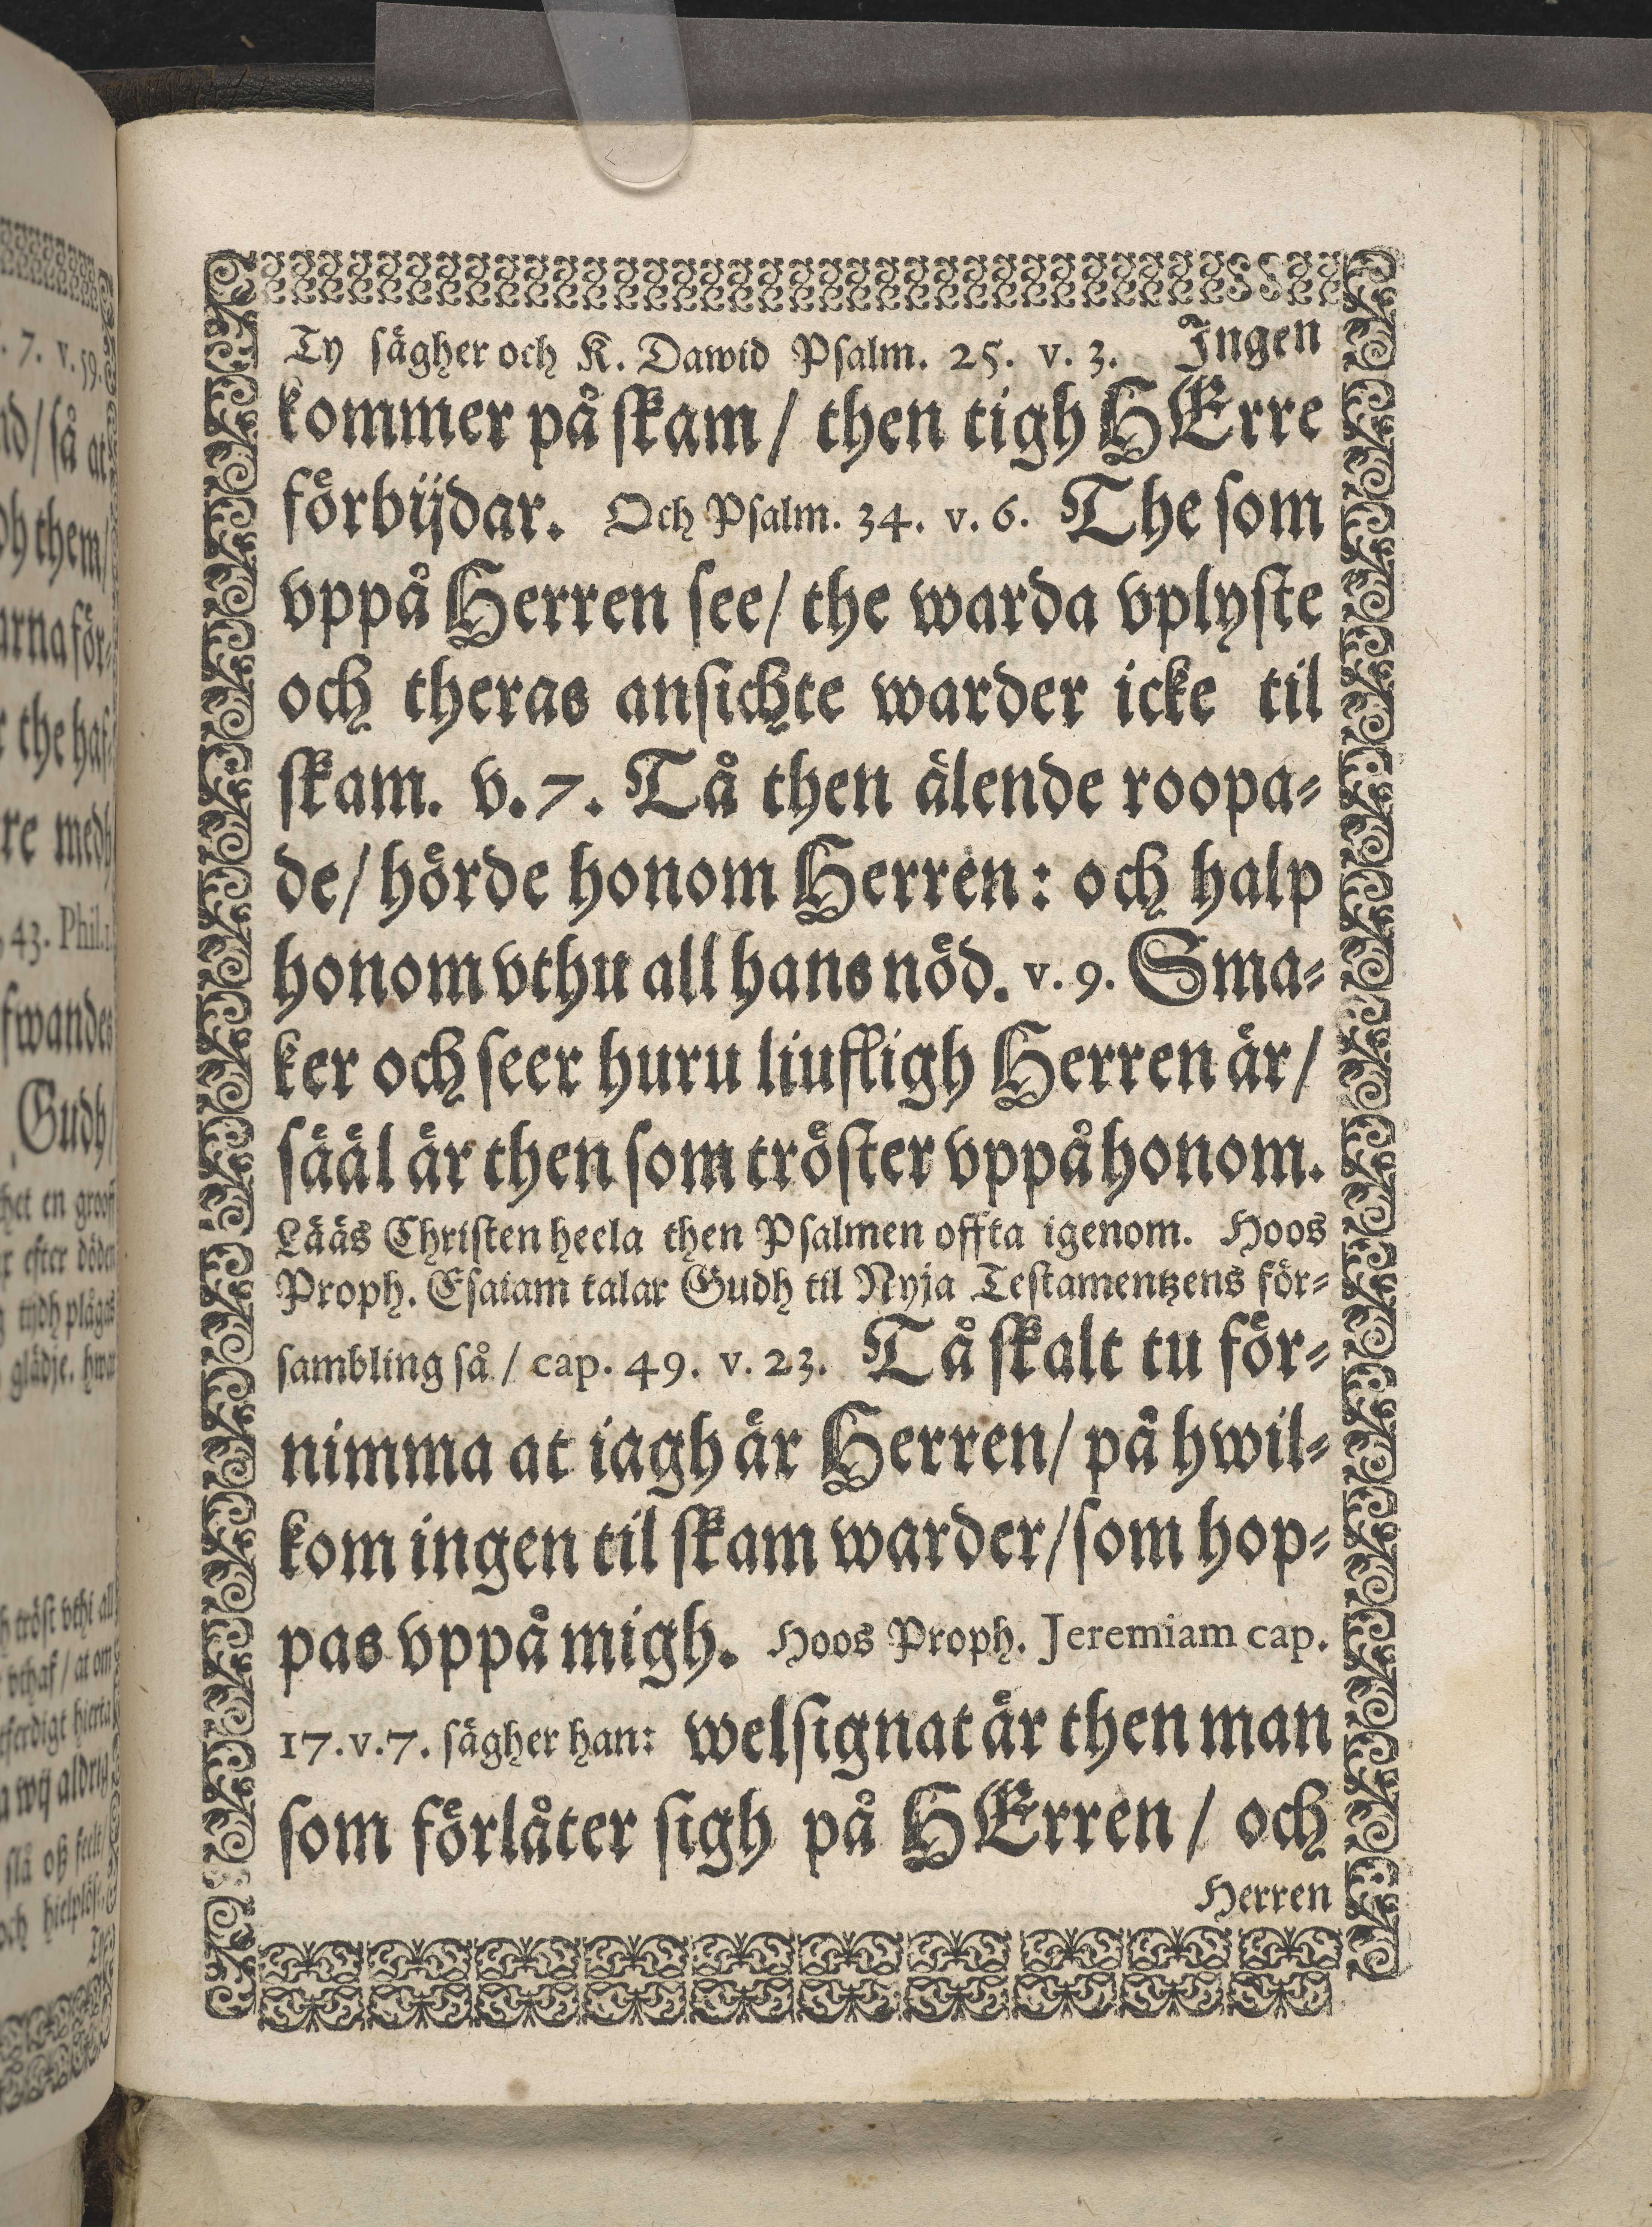 Ty sägher och K. Dawid Psalm. 25. v. 3. Ingen
kommer på skam / then tigh HErre
förbijdar. Och Psalm. 34. v. 6. The som
vppå Herren see / the warda vplyste
och theras ansichte warder icke til
skam. v. 7. Tå then älende roopa-
de / hörde honom Herren: och halp
honom vthu all hans nöd. v. 9. Sma-
ker och seer huru liufligh Herren är /
sääl är then som tröster vppå honom.
Lääs Christen heela then Psalmen offta igenom. Hoos
Proph. Esaiam talar Gudh til Nyja Testamentzens för-
sambling så / cap. 49. v. 23. Tå skalt tu för-
nimma at iagh är Herren / på hwil-
kom ingen til skam warder / som hop-
pas vppå migh. Hoos Proph. Jeremiam cap.
17. v. 7. sägher han: welsignat är then man
som förlåter sigh på HErren / och
Herren